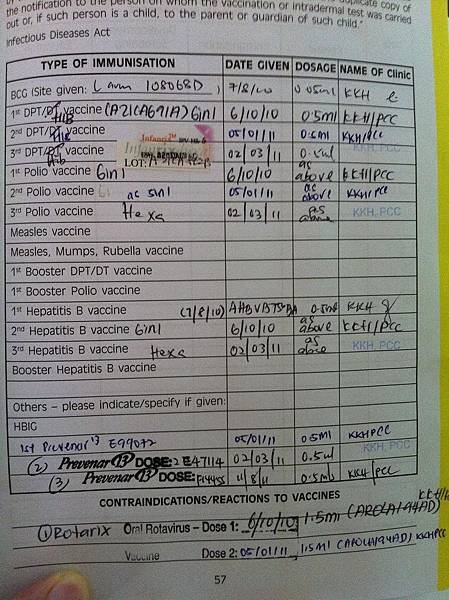 the notification to the person on whom the vaccination or intradermal test was carried
out or, if such person is a child, to the parent or guardian of such child."
Infectious Diseases Act
TYPE OF IMMUNISATION DATE GIVEN DOSAGE NAME OF Clinic
BCG (Site given: L arm 108068D) 7/8/10 0.05ml KKH
1st DPT/DT vaccine (A21CA691A) 6in1 6/10/10 0.5ml KKH/PCC
HIB
2nd DPT/DT vaccine 05/01/11 0.5ml KKH/PCC
Hib
3rd DPT/DT vaccine 02/03/11 0.5ml KKH, PCC
Hib
Infanrix
LOT:
1st Polio vaccine 6in1 6/10/10 as above KKH/PCC
2nd Polio vaccine as 5in1 05/01/11 as above KKH/PCC
3rd Polio vaccine Hexa 02/03/11 as above KKH, PCC
Measles vaccine
Measles, Mumps, Rubella vaccine
1st Booster DPT/DT vaccine
1st Booster Polio vaccine
1st Hepatitis B vaccine (7/8/10) 0.5ml KKH
2nd Hepatitis B vaccine 6in1 6/10/10 as above KKH/PCC
3rd Hepatitis B vaccine Hexa 02/03/11 as above KKH, PCC
Booster Hepatitis B vaccine
Others – please indicate/specify if given:
HBIG
1st Prevenar 13 E99072 05/01/11 0.5ml KKHPCC
(2) Prevenar 13 DOSE: 2 E47114 02/03/11 0.5ml KKH, PCC
(3) Prevenar 13 DOSE: 0.5ml KKH/PCC
CONTRAINDICATIONS/REACTIONS TO VACCINES
① Rotarix Oral Rotavirus – Dose 1: 6/10/10 1.5ml (AROLA194AD)
Vaccine Dose 2: 05/01/11 1.5ml (AROLA194AD) KKHPCC
57